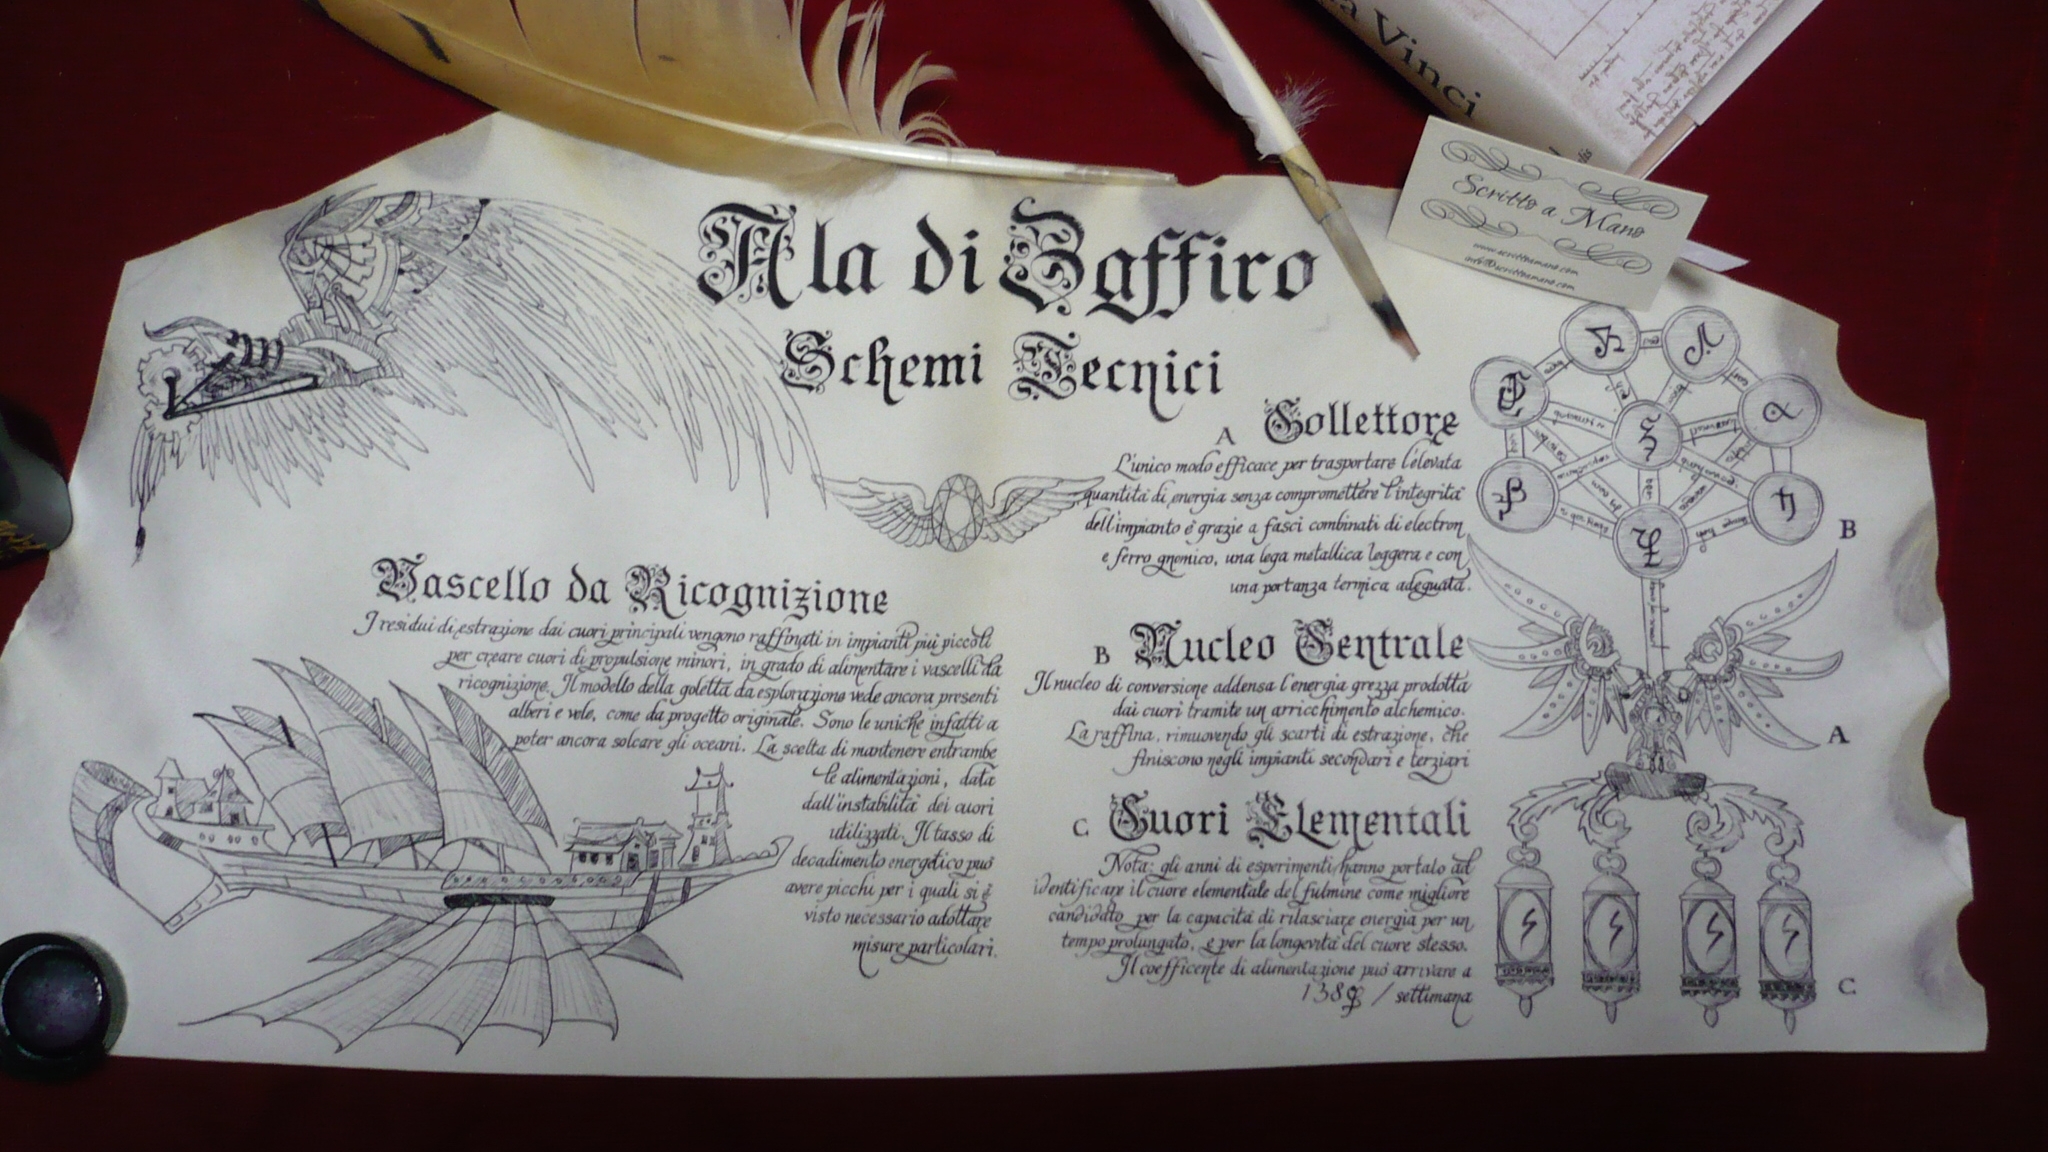 a Vinci
Scritto a Mano
www.scrittoamano.com
info@scrittoamano.com
Ala di Zaffiro
Schemi Tecnici
A Collettore
L'unico modo efficace per trasportare l'elevata
quantità di energia senza compromettere l'integrità
dell'impianto è grazie a fasci combinati di electron
e ferro gnemico, una lega metallica leggera e con
una portanza termica adeguata.
B
Vascello da Ricognizione
I residui di estrazione dai cuori principali vengono raffinati in impianti più piccoli
per creare cuori di propulsione minori, in grado di alimentare i vascelli da
ricognizione. Il modello della goletta da esplorazione vede ancora presenti
alberi e vele, come da progetto originale. Sono le uniche infatti a
poter ancora solcare gli oceani. La scelta di mantenere entrambe
le alimentazioni, data
dall'instabilità dei cuori
utilizzati. Il tasso di
decadimento energetico può
avere picchi per i quali si è
visto necessario adottare
misure particolari.
B Nucleo Centrale
Il nucleo di conversione addensa l'energia grezza prodotta
dai cuori tramite un arricchimento alchemico.
La raffina, rimuovendo gli scarti di estrazione, che
finiscono negli impianti secondari e terziari
A
C. Cuori Elementali
Nota: gli anni di esperimenti hanno portato ad
identificare il cuore elementale del fulmine come migliore
candidato per la capacità di rilasciare energia per un
tempo prolungato, e per la longevità del cuore stesso.
Il coefficente di alimentazione può arrivare a
138 / settimana
C.